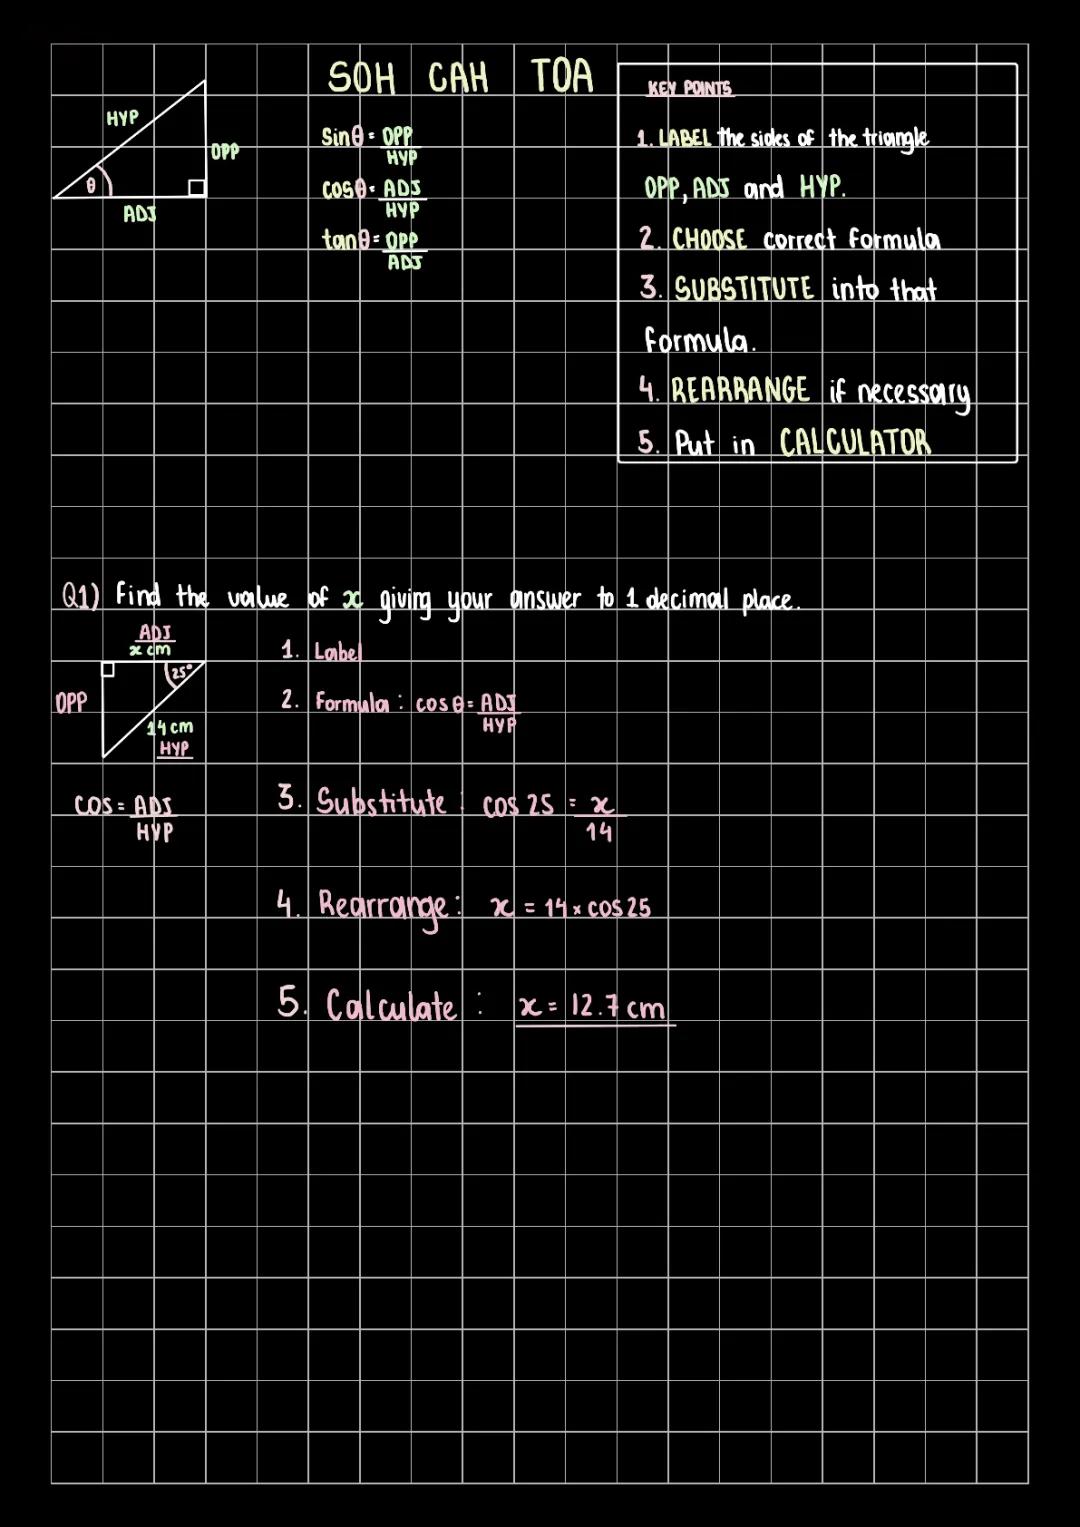 SOH CAH TOA
HYP
OPP
θ
ADJ
sinθ = OPP
HYP
cosθ = ADJ
HYP
tanθ = OPP
ADJ
KEY POINTS
1. LABEL the sides of the triangle
OPP, ADJ and HYP.
2. CHOOSE correct formula
3. SUBSTITUTE into that
formula.
4. REARRANGE if necessary
5. Put in CALCULATOR
Q1) Find the value of x giving your answer to 1 decimal place.
ADJ
x cm
25°
OPP
14 cm
HYP
COS = ADJ
HYP
1. Label
2. Formula : cos θ = ADJ
HYP
3. Substitute : cos 25 = x
14
4. Rearrange : x = 14 × cos 25
5. Calculate : x = 12.7 cm